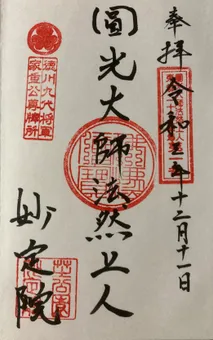 奉拝
令和五年十二月十一日
圓光大師法然上人
徳川九代将軍
家重公尊牌所
妙定院